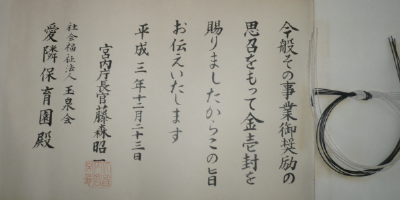 今般その事業御奨励の
思召をもって金壱封を
賜りましたからこの旨
お伝えいたします
平成三年十二月二十三日
宮内庁長官藤森昭一
社会福祉法人玉泉会
愛隣保育園殿